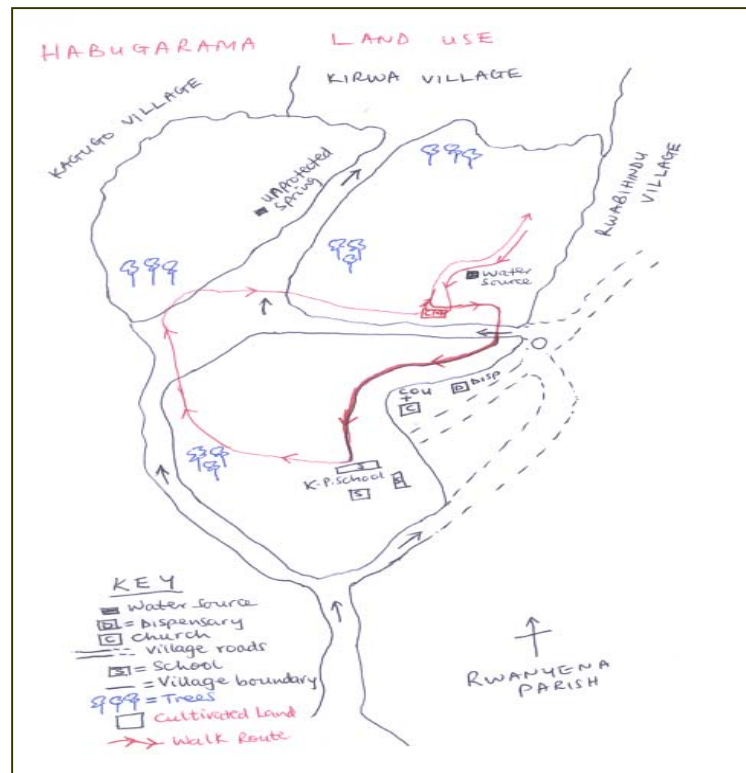 HABUGARAMA LAND USE
KIRWA VILLAGE
KAGUGO VILLAGE
RWABIHINDU
VILLAGE
UNPROTECTED
SPRING
WATER
SOURCE
COU
C
D DISP
S
K.P. SCHOOL
S
S
KEY
WATER SOURCE
D = DISPENSARY
C CHURCH
= VILLAGE ROADS
S = SCHOOL
= VILLAGE BOUNDARY
= TREES
CULTIVATED LAND
WALK ROUTE
RWANYENA
PARISH